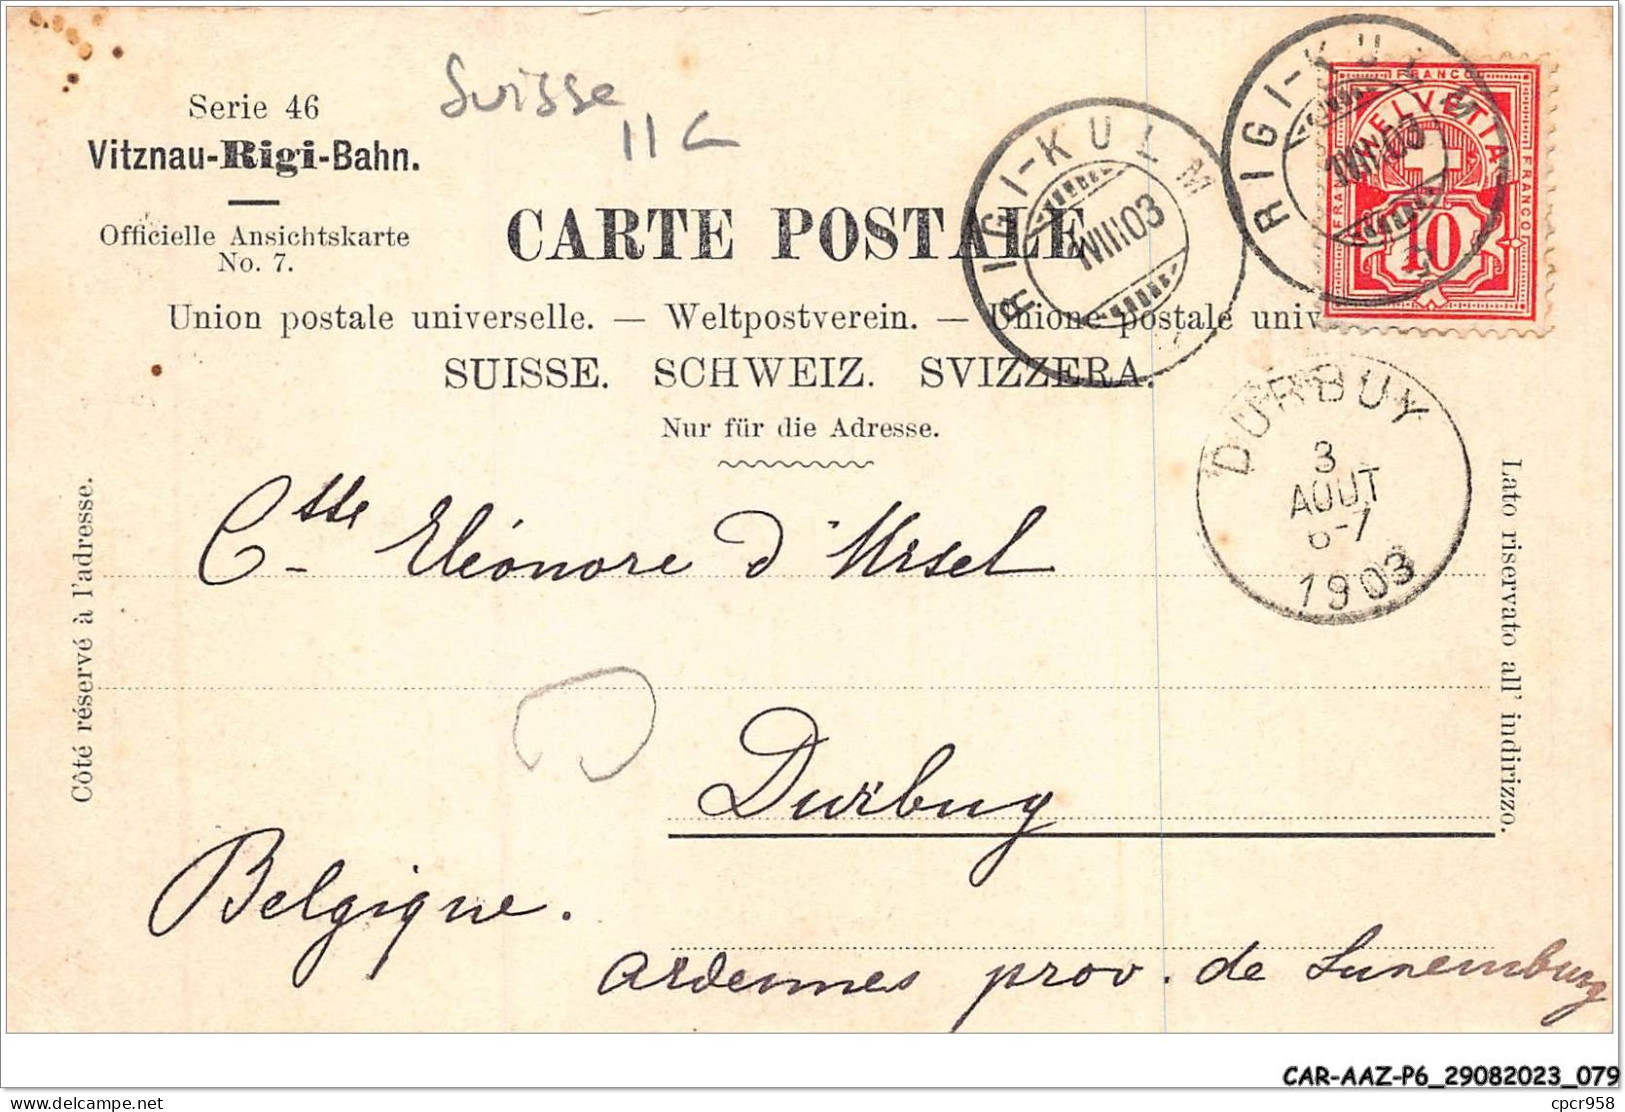 Serie 46
Vitznau-Rigi-Bahn.
Officielle Ansichtskarte
No. 7.
Suisse
11 C
CARTE POSTALE
RIGI-KULM
1 VIII 03
RIGI-KULM
1 VIII 03
FRANCO
HELVETIA
FRANCO
FRANCO
10
Union postale universelle. — Weltpostverein. — Unione postale univ
SUISSE. SCHWEIZ. SVIZZERA.
Nur für die Adresse.
DURBUY
3
AOUT
6-7
1903
Côté réservé à l'adresse.
Lato riservato all' indirizzo.
Ctsse Eléonore d'Ursel
Durbuy
Belgique.
Ardennes prov. de Luxembourg
CAR-AAZ-P6_29082023_079
delcampe.net
cpcr958